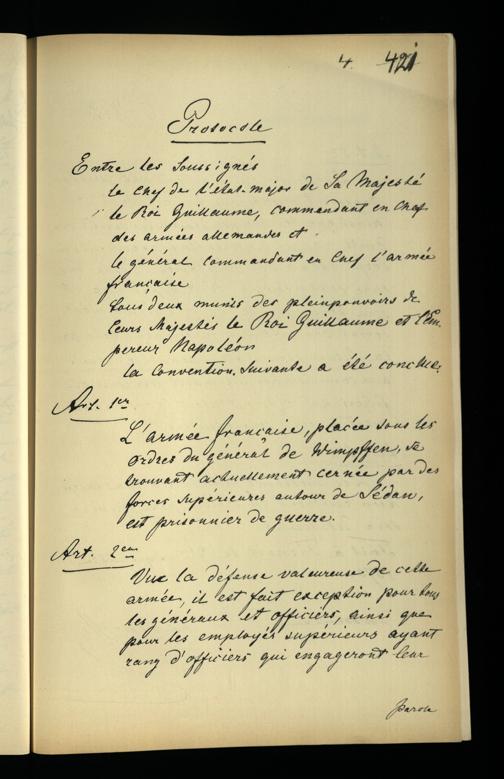 4. 421
Protocole
Entre les soussignés
le chef de l'état-major de Sa Majesté
le Roi Guillaume, commandant en Chef
des armées allemandes et
le général commandant en Chef l'armée
française
tous deux munis des pleinpouvoirs de
leurs Majestés le Roi Guillaume et l'Em-
pereur Napoléon
la Convention suivante a été conclue.
Art. 1er
L'armée française, placée sous les
ordres du général de Wimpffen, se
trouvant actuellement cernée par des
forces supérieures autour de Sédan,
est prisonnier de guerre.
Art. 2em
Vue la défense valeureuse de cette
armée, il est fait exception pour tous
les généraux et officiers, ainsi que
pour les employés supérieurs ayant
rang d'officiers qui engageront leur
parole